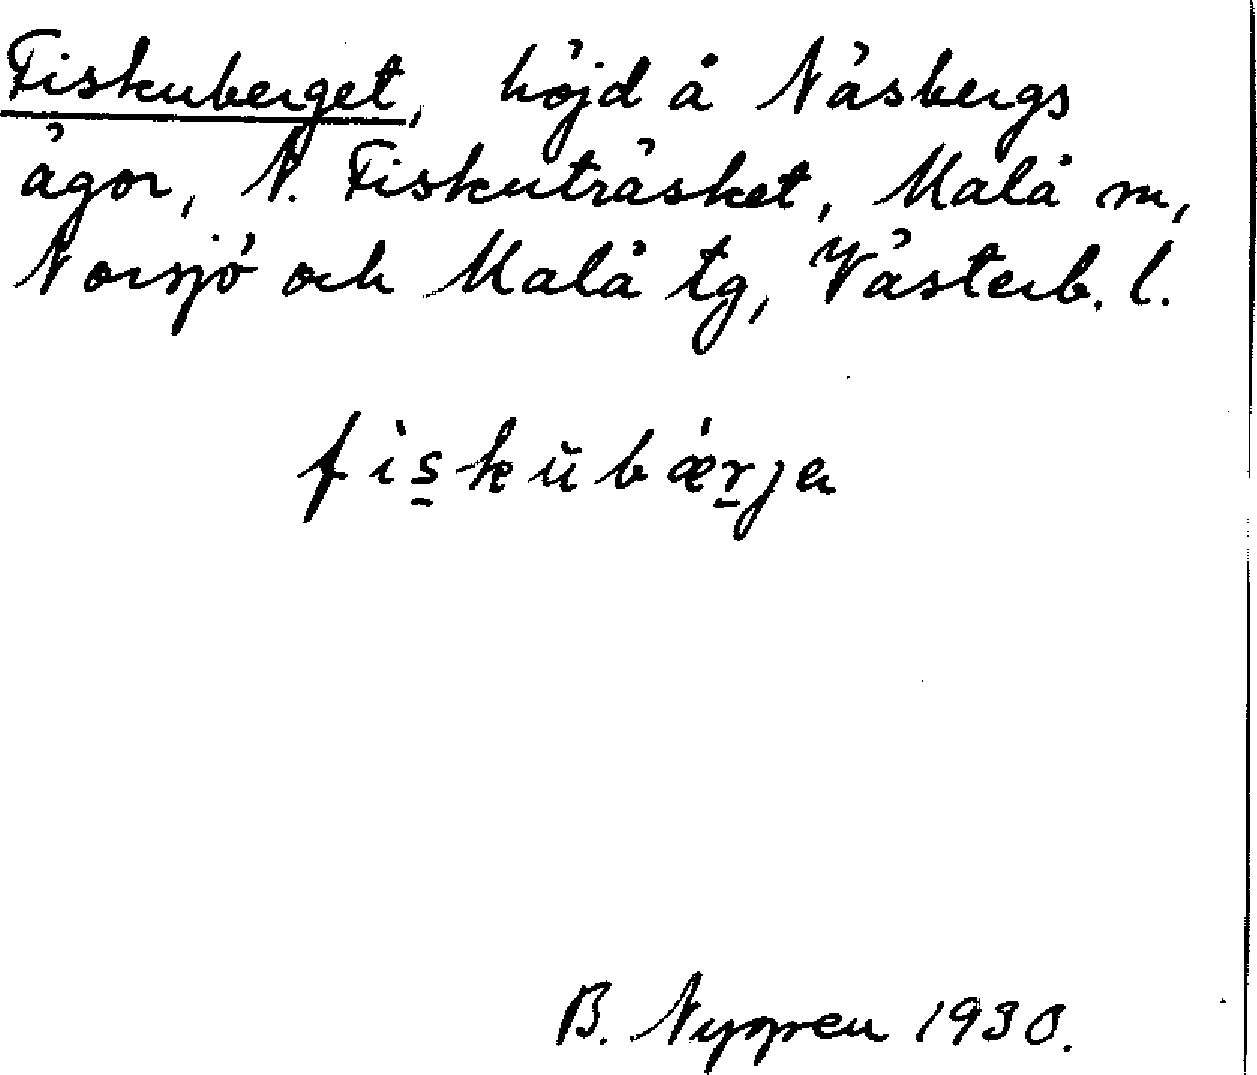 Fiskuberget, höjd å Näsbergs
ägor, N. Fiskuträsket, Malå sn,
Norsjö och Malå tg, Västerb. l.
fìs̱kŭbǽṟja
B. Nygren 1930.